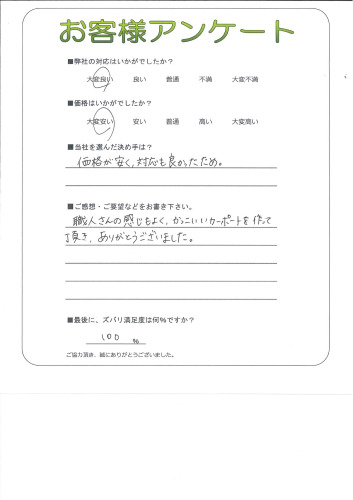 お客様アンケート
■弊社の対応はいかがでしたか？
大変良い 良い 普通 不満 大変不満
■価格はいかがでしたか？
大変安い 安い 普通 高い 大変高い
■当社を選んだ決め手は？
価格が安く、対応も良かったため。
■ご感想・ご要望などをお書き下さい。
職人さんの感じもよく、かっこいいカーポートを作って
頂き、ありがとうございました。
■最後に、ズバリ満足度は何%ですか？
100 %
ご協力頂き、誠にありがとうございました。